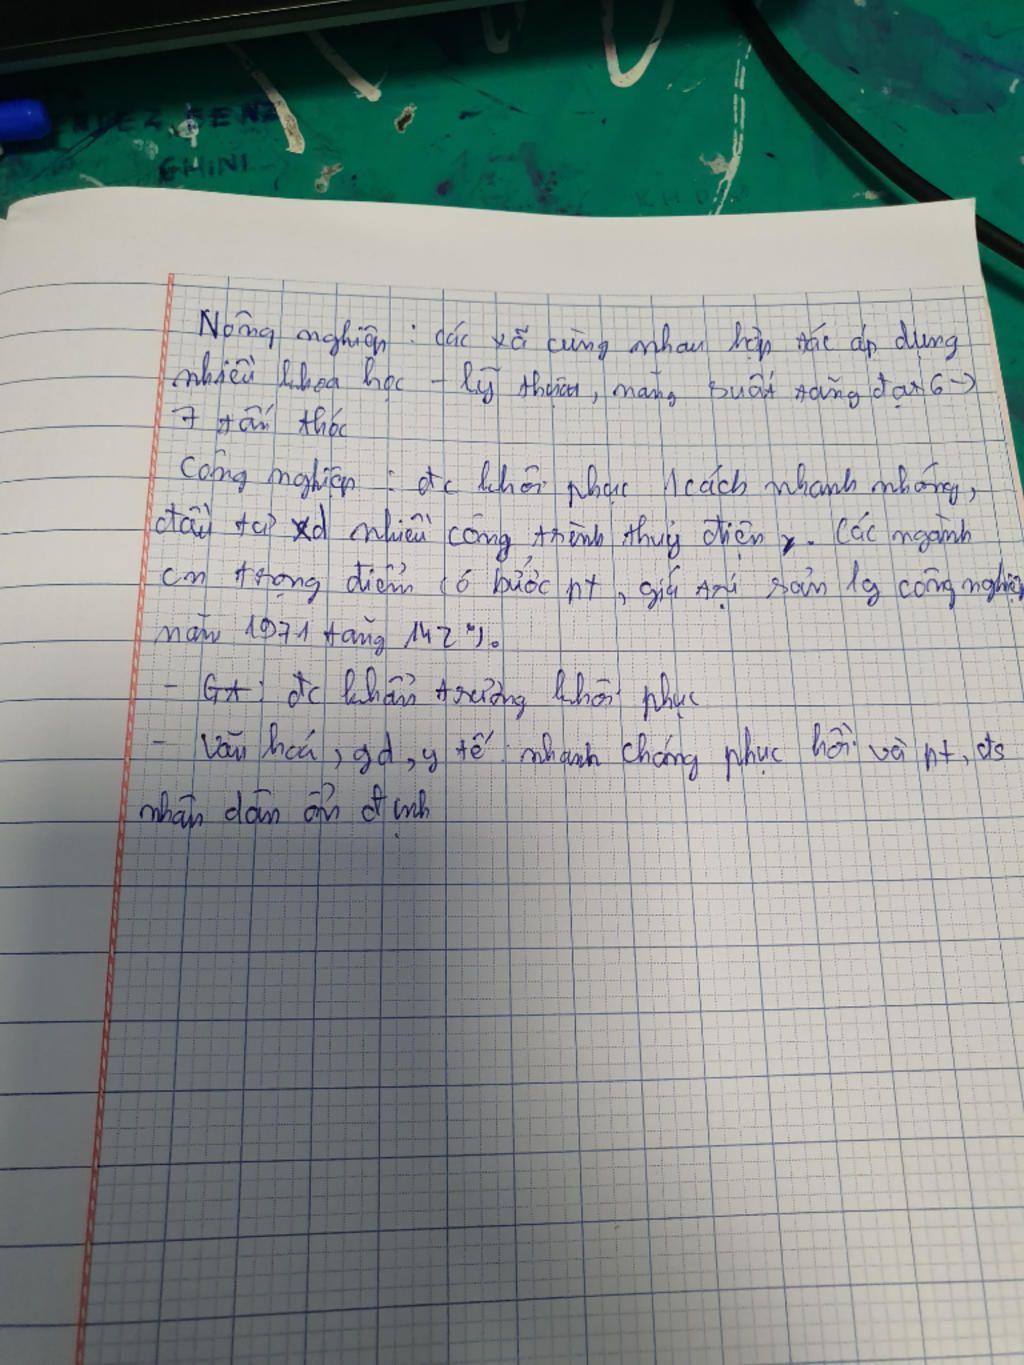 GHINI
Nông nghiệp : các xã cùng nhau hợp tác áp dụng
nhiều khoa học - kỹ thuật, năng suất tăng đạt 6 →
7 tấn thóc
Công nghiệp : đc khôi phục 1 cách nhanh nhóng,
đầu tư xd nhiều công trình thuỷ điện . Các ngành
cn trọng điểm có bước pt , giá trị sản lg công nghiệp
năm 1971 tăng 142 %.
- GT : đc khẩn trương khôi phục
- Văn hoá , gd , y tế : nhanh chóng phục hồi và pt, đs
nhân dân ổn định